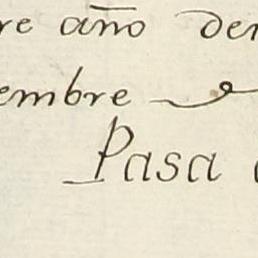 re año den
embre
Pasa